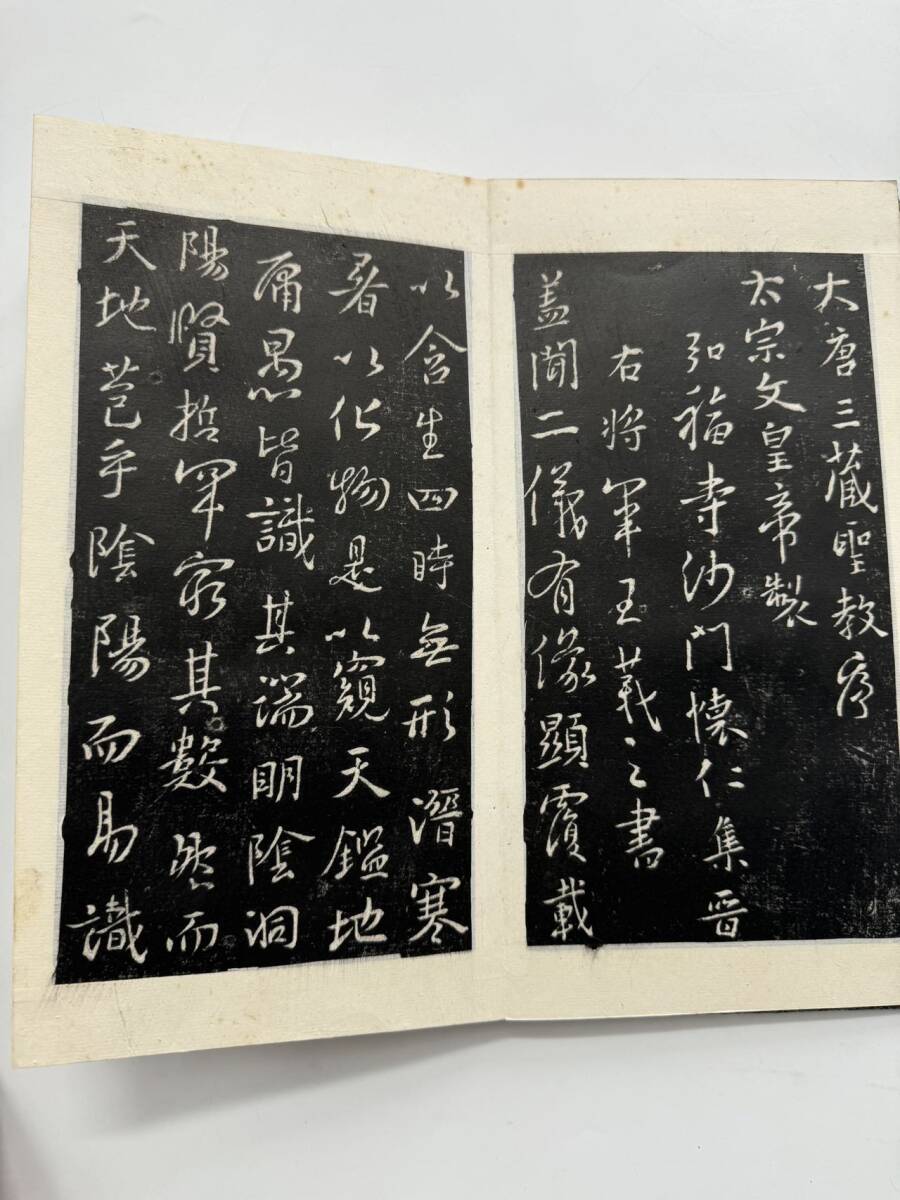 大唐三藏聖教序
太宗文皇帝製
弘福寺沙門懷仁集晉
右將軍王羲之書
盖聞二儀有像顯覆載
以含生四時無形潛寒
暑以化物是以窺天鑑地
庸愚皆識其端明陰洞
陽賢哲罕窮其數然而
天地苞乎陰陽而易識